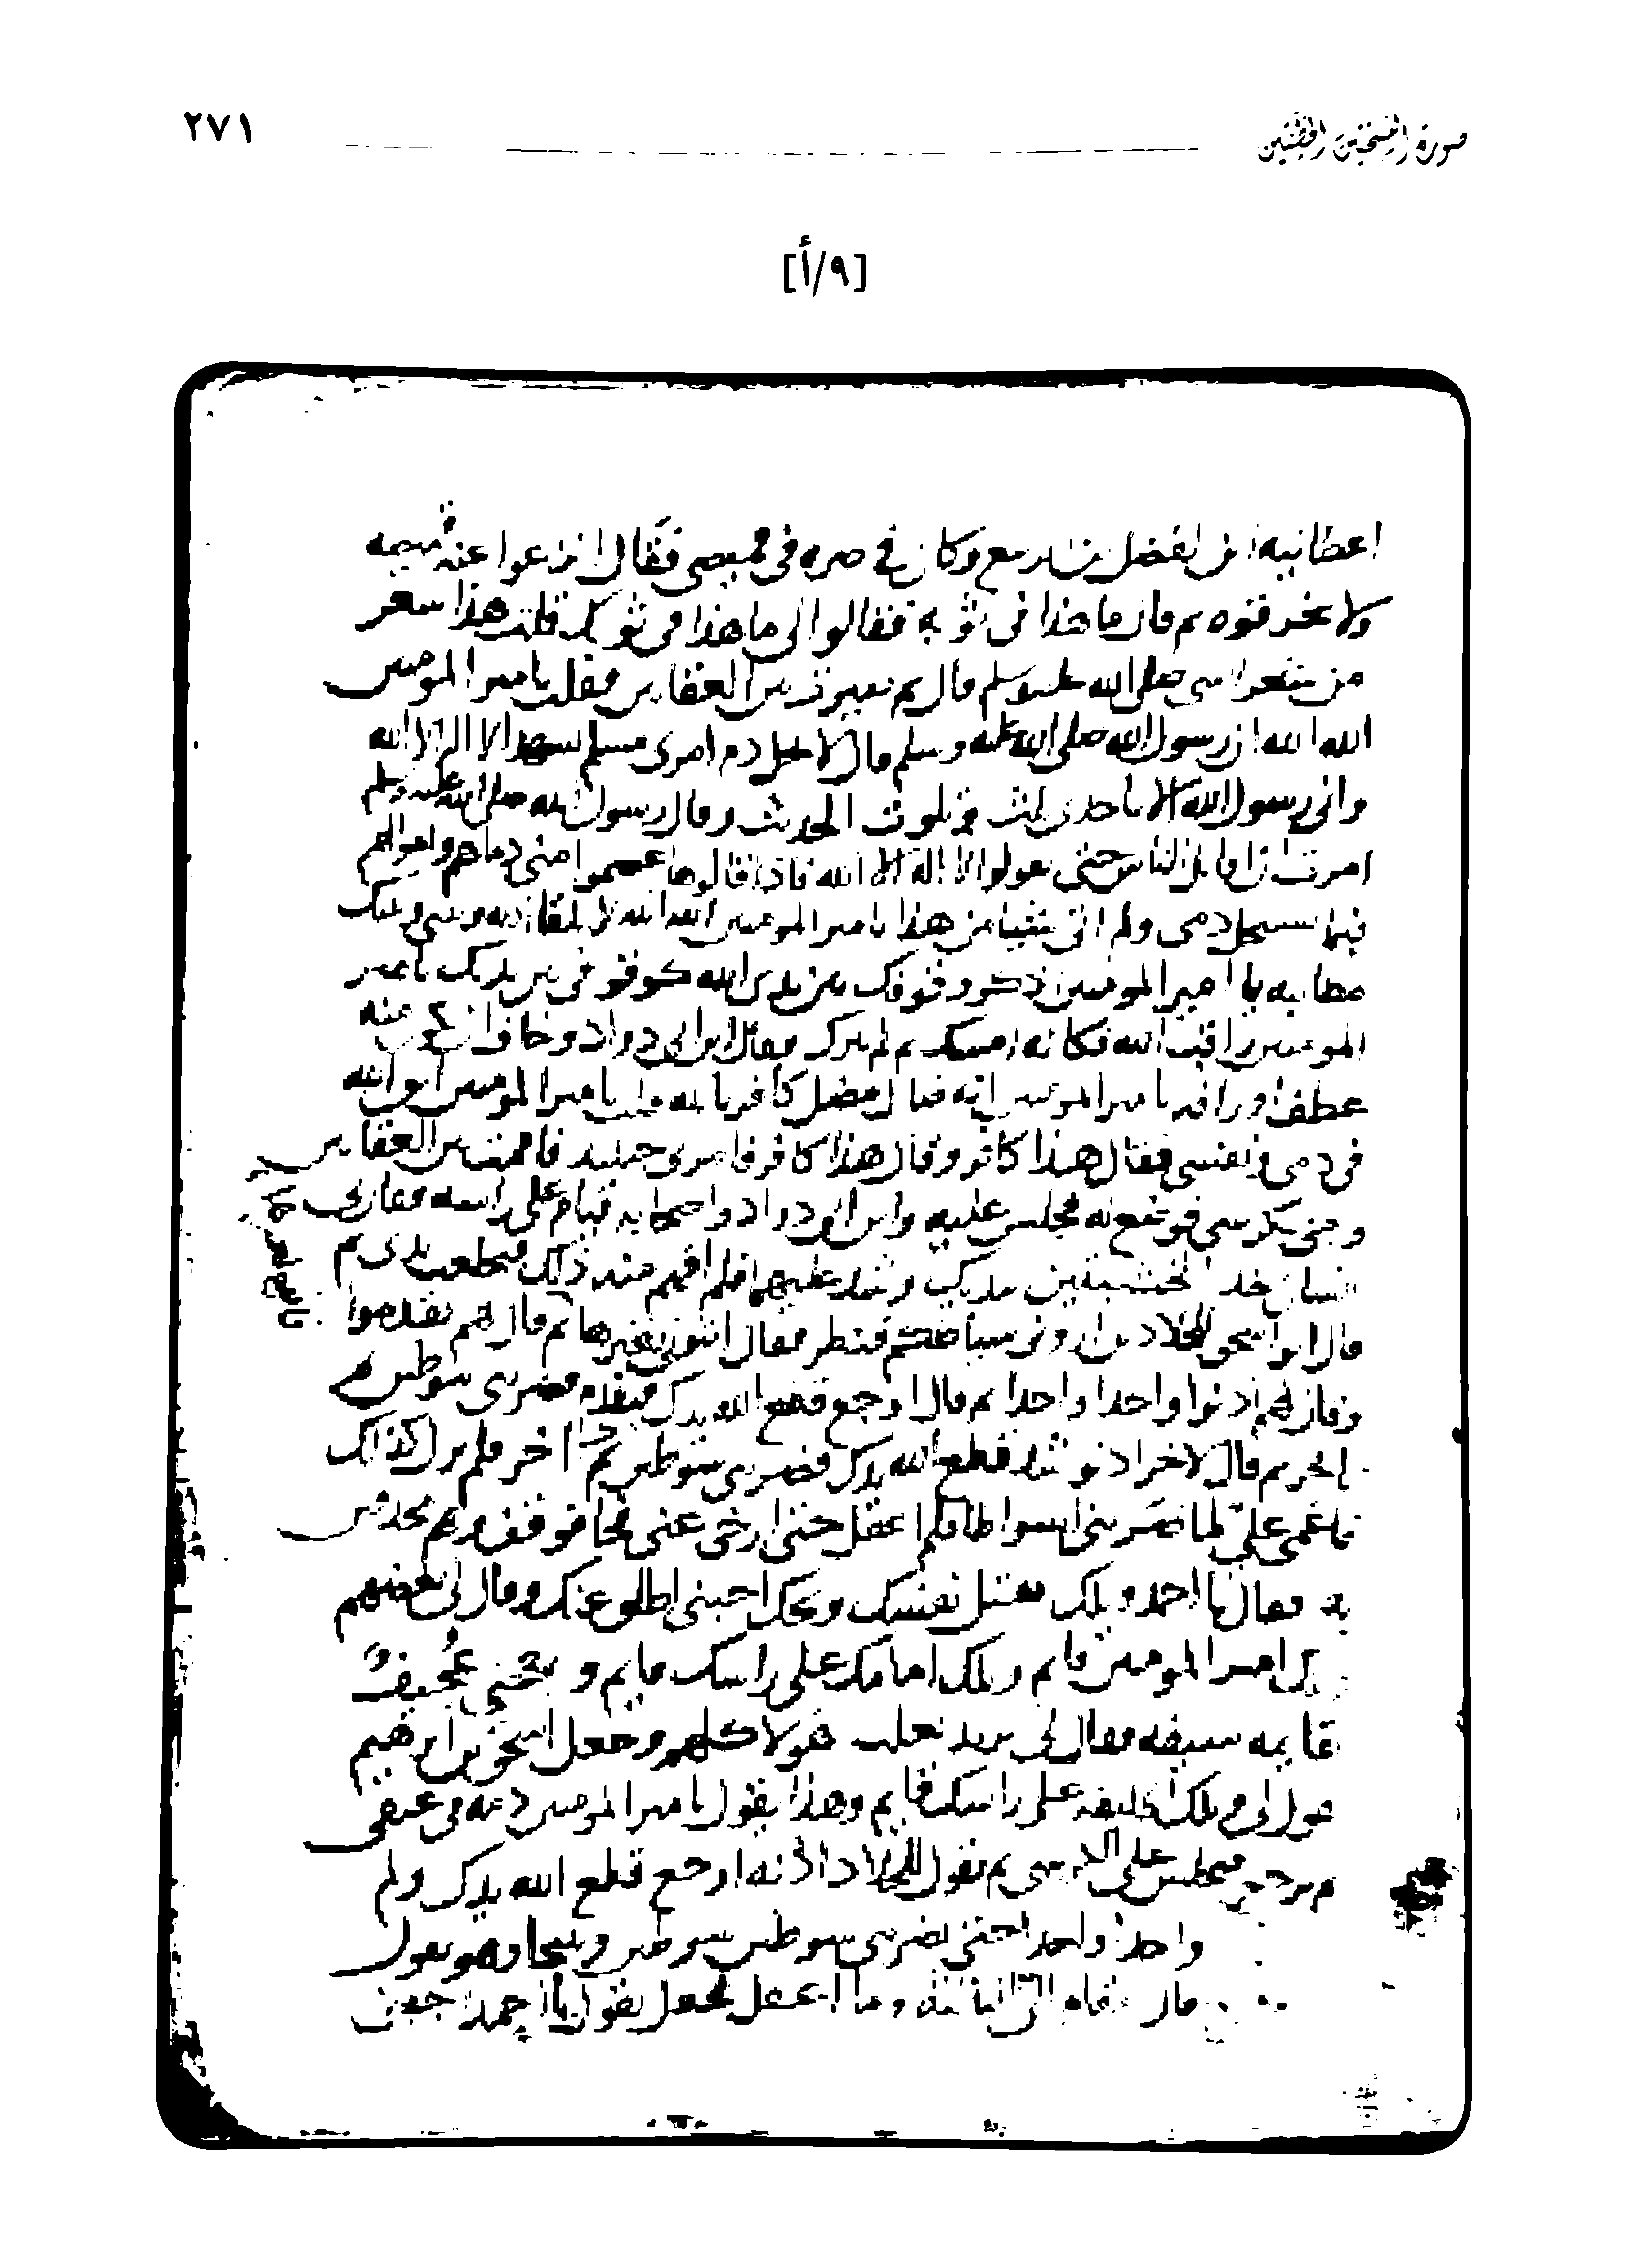 صورة النسختين الخطيتين
٢٧١
[٩/أ]
اعطانيه ابن الفضل بن الربيع وكان في صره في قميصي فقال انزعوا عنه قميصه
ولا تخرقوه ثم قال ما هذا في ثوبه فقالوا لي ما هذا في ثوبك فقلت هذا شعر
من شعر النبي صلى الله عليه وسلم قال ثم بين العقابين فقلت يا امير المومنين
الله الله ان رسول الله صلى الله عليه وسلم قال لا يحل دم امرى مسلم يشهد الا اله الا الله
واني رسول الله الا باحدى ثلث وتلوت الحديث وقال رسول الله صلى الله عليه وسلم
امرت ان اقاتل الناس حتى يقولوا لا اله الا الله فاذا قالوها عصموا مني دماهم واموالهم
فبما تستحل دمي ولم اتي شيا من هذا يا امير المومنين الله الله لا تلقا الله وبيني وبينك
مطالبه يا امير المومنين ذكر وقوفك بين يدي الله كوقوفي بين يديك يا امير
المومنين راقب الله فكانه امسك ثم لم يترك فقال ابن ابي دواد وخاف ان منه
عطفا او رافه يا امير المومنين انه ضال مضل كافر بالله فقلت يا امير المومنين اتق الله
في دمي ونفسي فقال هذا كافر وقال هذا كافر فامر بي حينيذ فاقمت بين العقابين
وجي بكرسي فوضع له فجلس عليه وابن ابي دواد واصحابه قيام على راسه فقال لي
انسان خذ الخشبتين بيديك وشد عليهما فلم افهم منه ذلك فتخلعت يدي ثم
قال ابو اسحق للجلادين اروني سياطكم فنظر فقال اتوني بغيرها ثم قال لهم تقدموا
وقال لهم ادنوا واحدا واحدا ثم قال اوجع قطع الله يدك فتقدم فضربني سوطين ثم
تاخر ثم قال لاخر ادنو شد قطع الله يدك فضربني سوطين ثم اخر فلم يزل كذلك
فاغمي علي لما ضربني اسواطا فلم اعقل حتى ارخى عني فجا فوقف وهم محدقين
به فقال يا احمد ويلك تقتل نفسك ويحك اجبني اطلق عنك وقال لي بعضهم
امير المومنين قايم ويلك امامك على راسك قايم و عجيف
قايمه سيفه فقال لي تريد تغلب هولا كلهم وجعل اسحق بن ابرهيم
يقول لي ويلك الخليفه على راسك قايم وهذا يقول يا امير المومنين دمه في عنقي
ثم يرجع فيجلس على الكرسي ثم يقول للجلاد ادنه اوجع قطع الله يدك ولم
واحدا واحدا حتى يضربني سوطين سوطين ويتنحا وهو يقول
قال فقام الي الثانيه وما اعقل فجعل يقول يا احمد اجبني